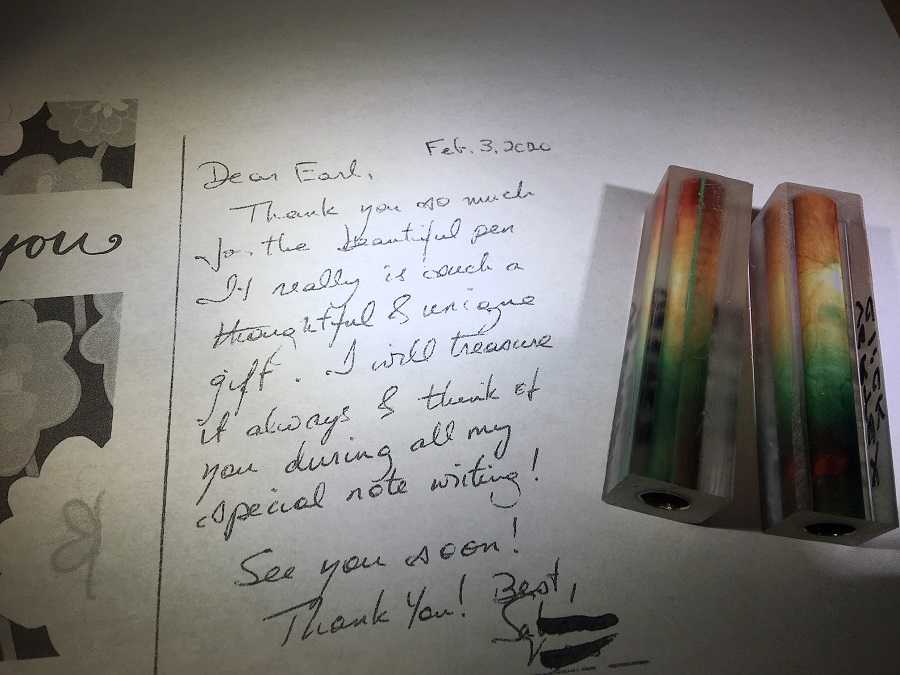 you
Feb. 3, 2020
Dear Earl,
Thank you so much
for the beautiful pen
It really is such a
thoughtful & unique
gift. I will treasure
it always & think of
you during all my
special note writing!
See you soon!
Thank You! Best,